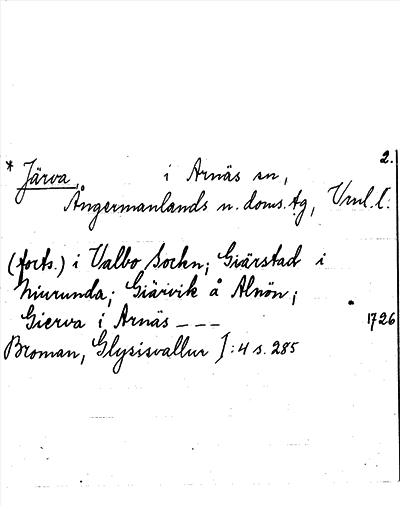 2.
* Järva, i Arnäs sn,
Ångermanlands n. doms. tg, Vnl. l.
(forts.) i Valbo Sockn; Giärstad i
Niurunda; Giärvik å Alnön;
Gierva i Arnäs --- 1726
Broman, Glysisvallur I:4 s. 285